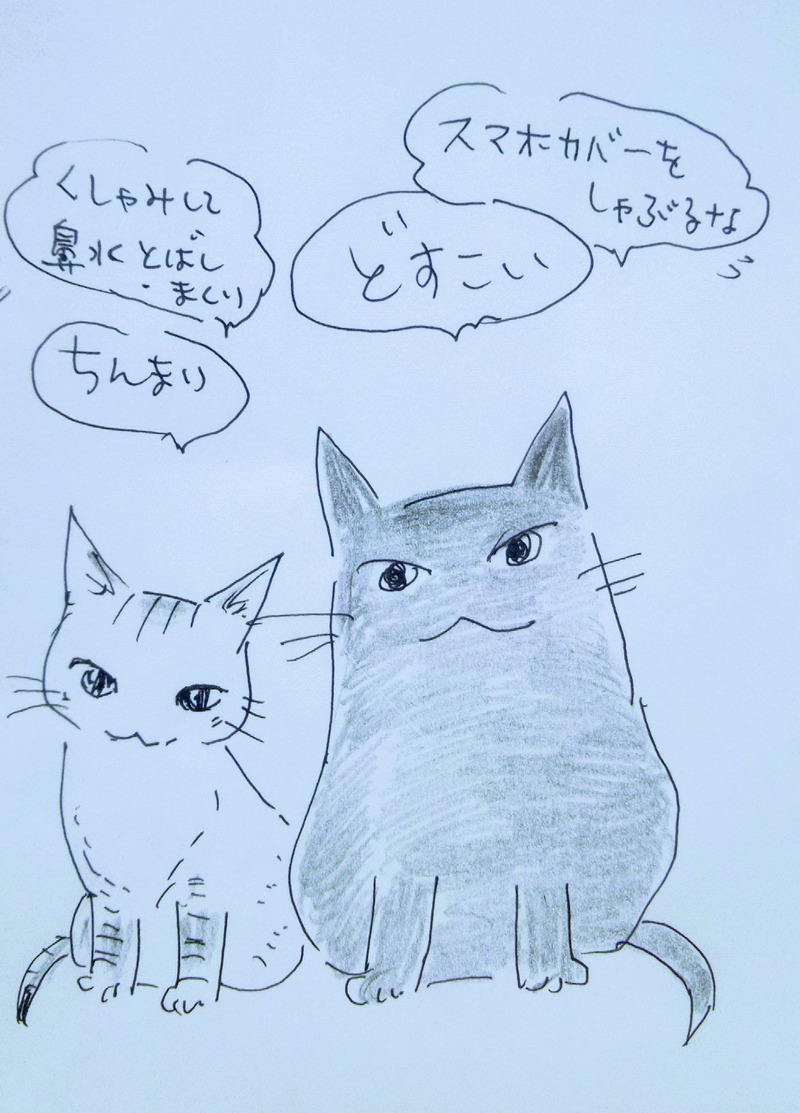 スマホカバーを
しゃぶるな
どすこい
くしゃみして
鼻水とばし
まくり
ちんまり